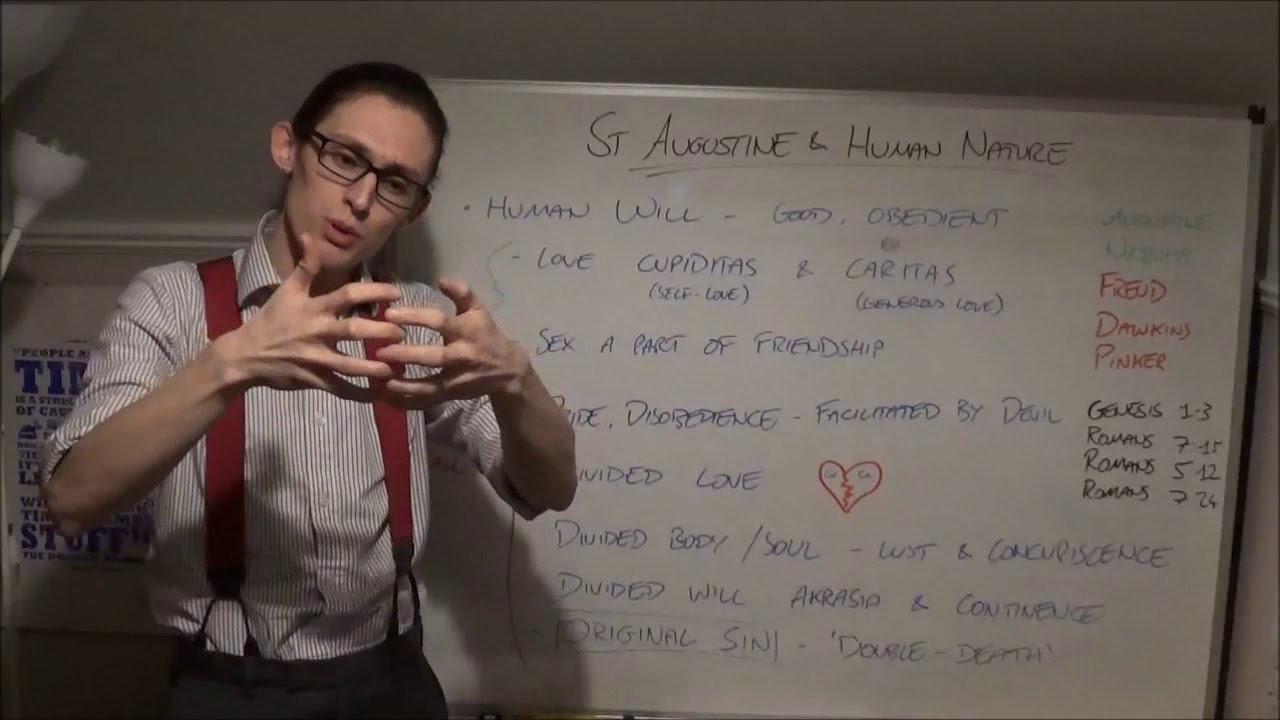 ST AUGUSTINE & HUMAN NATURE
• HUMAN WILL - GOOD, OBEDIENT
- LOVE CUPIDITAS & CARITAS
(SELF-LOVE) (GENEROUS LOVE)
SEX A PART OF FRIENDSHIP
DISOBEDIENCE - FACILITATED BY DEVIL
LOVE
DIVIDED BODY/SOUL - LUST & CONCUPISCENCE
DIVIDED WILL AKRASIA & CONTINENCE
- ORIGINAL SIN - 'DOUBLE-DEATH'
AUGUSTINE
FREUD
DAWKINS
PINKER
GENESIS 1-3
ROMANS 7-15
ROMANS 5-12
ROMANS 7-24
"PEOPLE AS
TIM
IS A STRI
OF CAU
STUFF"